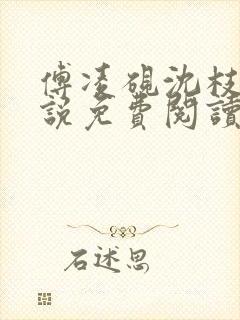 傅凌砚沈枝
説免費閱讀
石述思